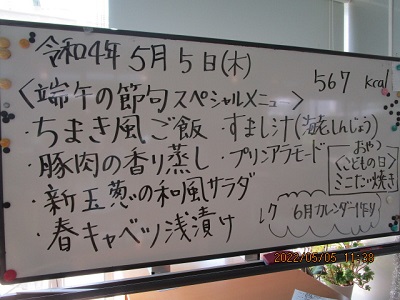 令和4年 5月5日(木)
567 kcal
<端午の節句スペシャルメニュー>
・ちまき風ご飯 ・すまし汁(海老しんじょう)
・豚肉の香り蒸し ・プリンアラモード
・新玉葱の和風サラダ
・春キャベツ浅漬け
おやつ
<こどもの日>
ミニたい焼き
レク 6月カレンダー作り
2022/05/05 11:38